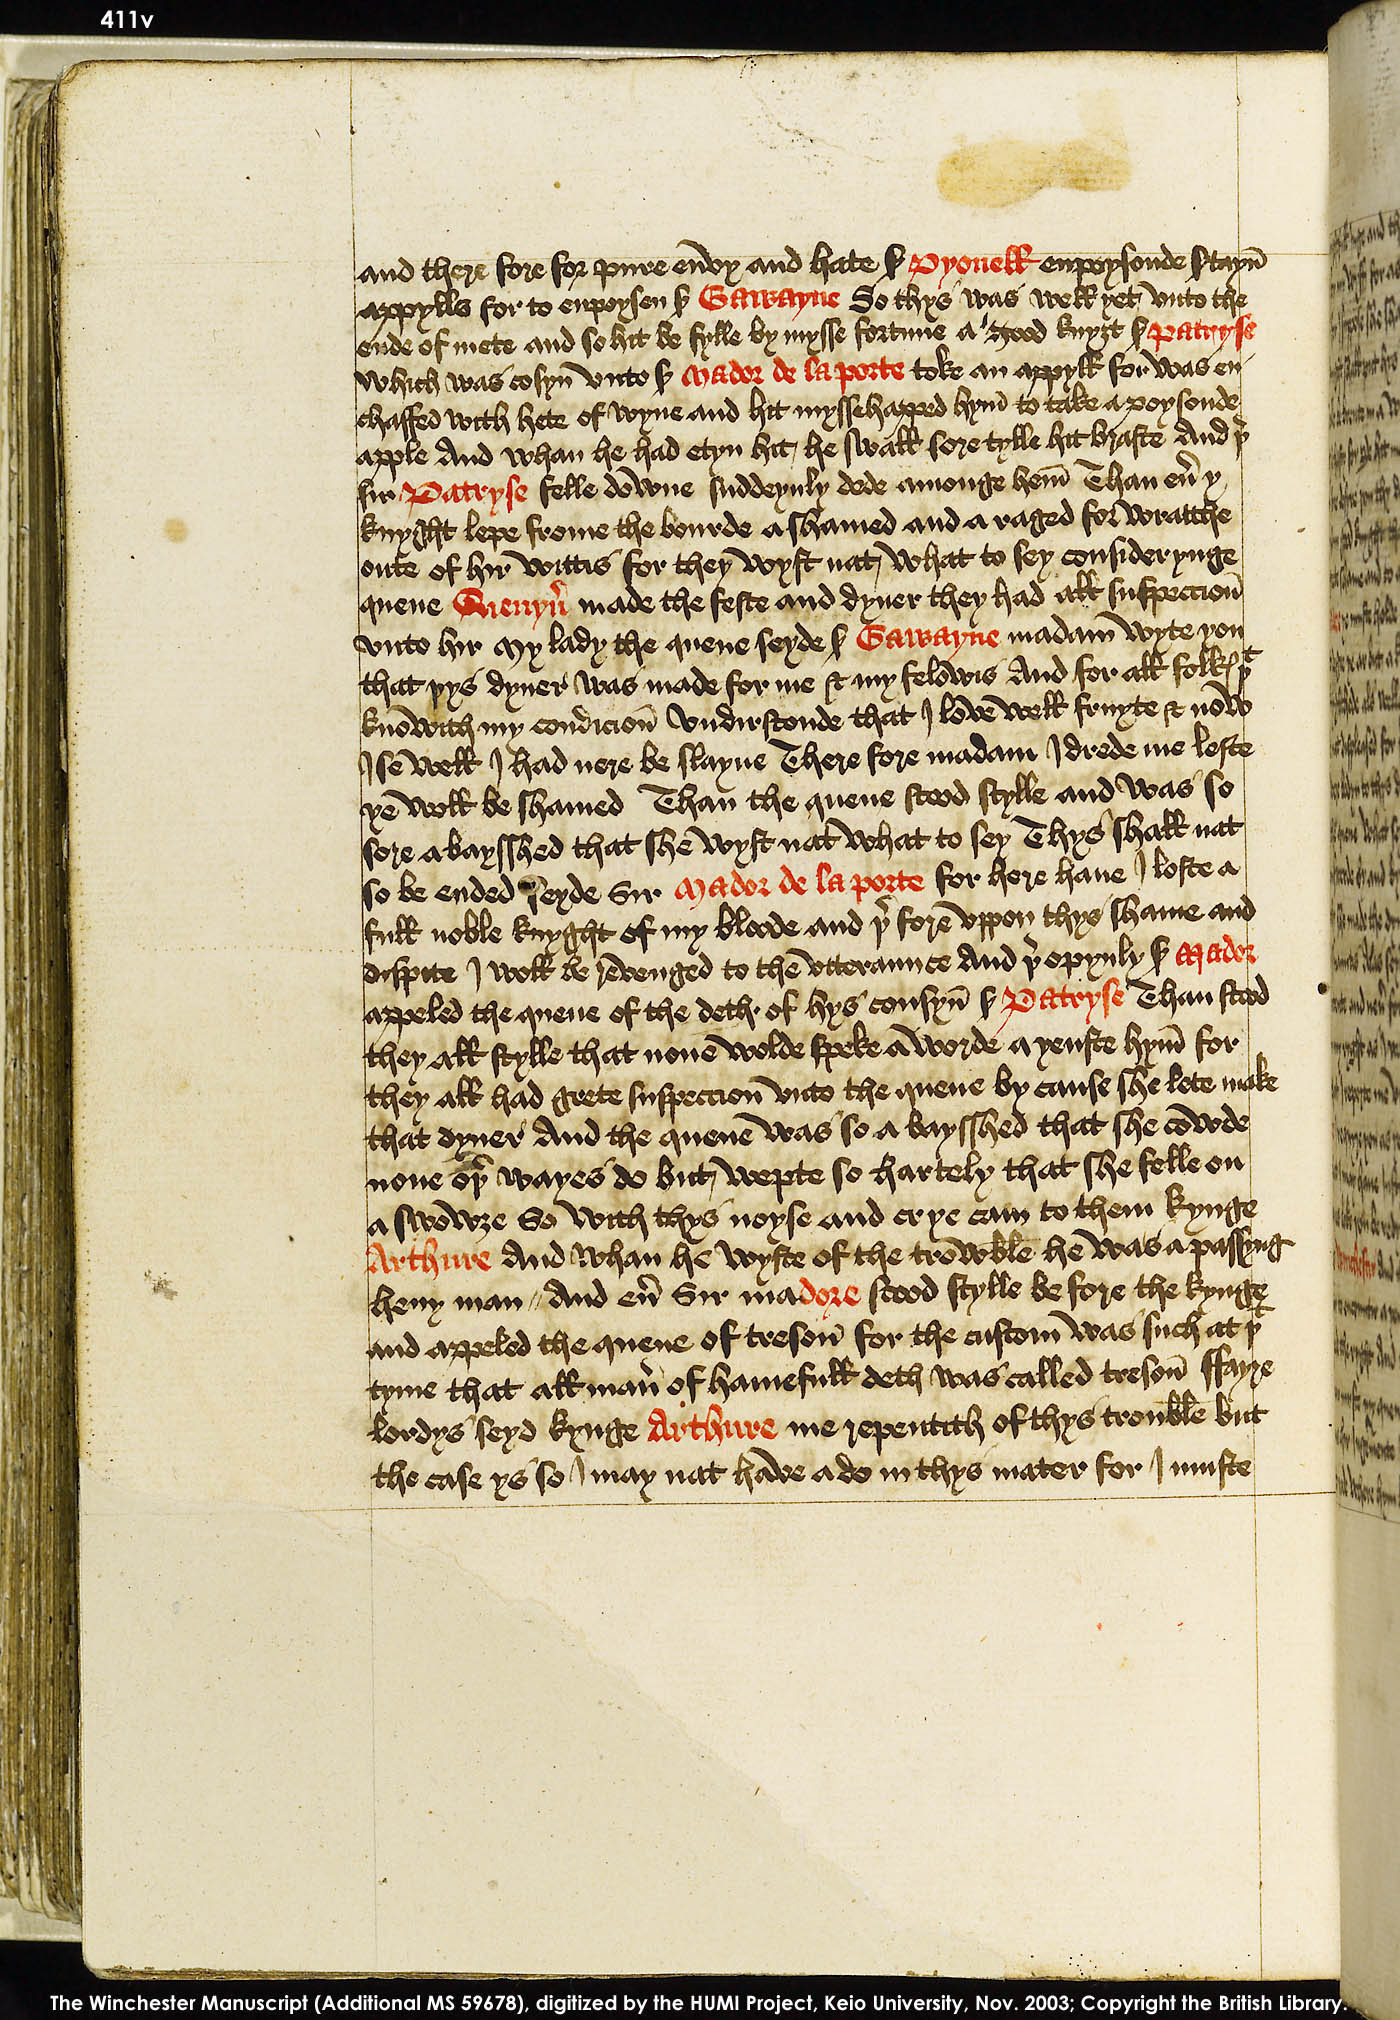 411v
and there fore for pure envy and hate sir Pyonell enpoysonde sertayn̄
appylls for to enpoysen sir Gawayne So thys was well yet vnto the
ende of mete and so hit be fylle by mysse fortune a good knyȝt sir Patryse
which was cosyn̄ vnto sir Mador de la porte toke an appyll for was en
chaffed with hete of wyne and hit myssehapped hym̄ to take a poysonde
apple And whan he had etyn hit he swall sore tylle hit braste And þr
sir Patryse felle downe suddeynly dede amonge hem̄ Than eūy
knyght lepe frome the bourde a shamed and a raged for wratthe
oute of hir wittis for they wyst nat what to sey considerynge
quene Gwenyūr made the feste and dyner they had all suspeccion̄
vnto hir My lady the quene seyde sir Gawayne madam̄ wyte you
that þys dyner was made for me & my felowis And for all folkes þt
knowith my condicion̄ vndirstonde that I love well fruyte & now
I se well I had nere be slayne There fore madam I drede me leste
ye woll be shamed Than the quene stood stylle and was so
sore a baysshed that she wyst nat what to sey Thys shall nat
so be ended seyde Sir Mador de la porte for here haue I loste a
full noble knyght of my bloode and þr fore vppon thys shame and
dispite I woll be revenged to the vtteraunce And þr opynly sir Mador
appeled the quene of the deth of hys cousyn̄ sir Patryse Than stood
they all stylle that none wolde speke a worde a yenste hym̄ for
they all had grete suspeccion̄ vnto the quene by cause she lete make
that dyner And the quene was so a baysshed that she cowde
none oþr wayes do but wepte so hartely that she felle on
a swowȝe So with thys noyse and crye cam to them kynge
Arthure And whan he wyste of the trowble he was a passyng
hevy man And eūr Sir madore stood stylle be fore the kynge
and appeled the quene of treson̄ for the custom was such at þt
tyme that all man̄er of shamefull deth was called treson̄ ffayre
lordys seyd kynge Arthure me repentith of thys trouble but
the case ys so I may nat have a do in thys mater for I muste
The Winchester Manuscript (Additional MS 59678), digitized by the HUMI Project, Keio University, Nov. 2003; Copyright the British Library.